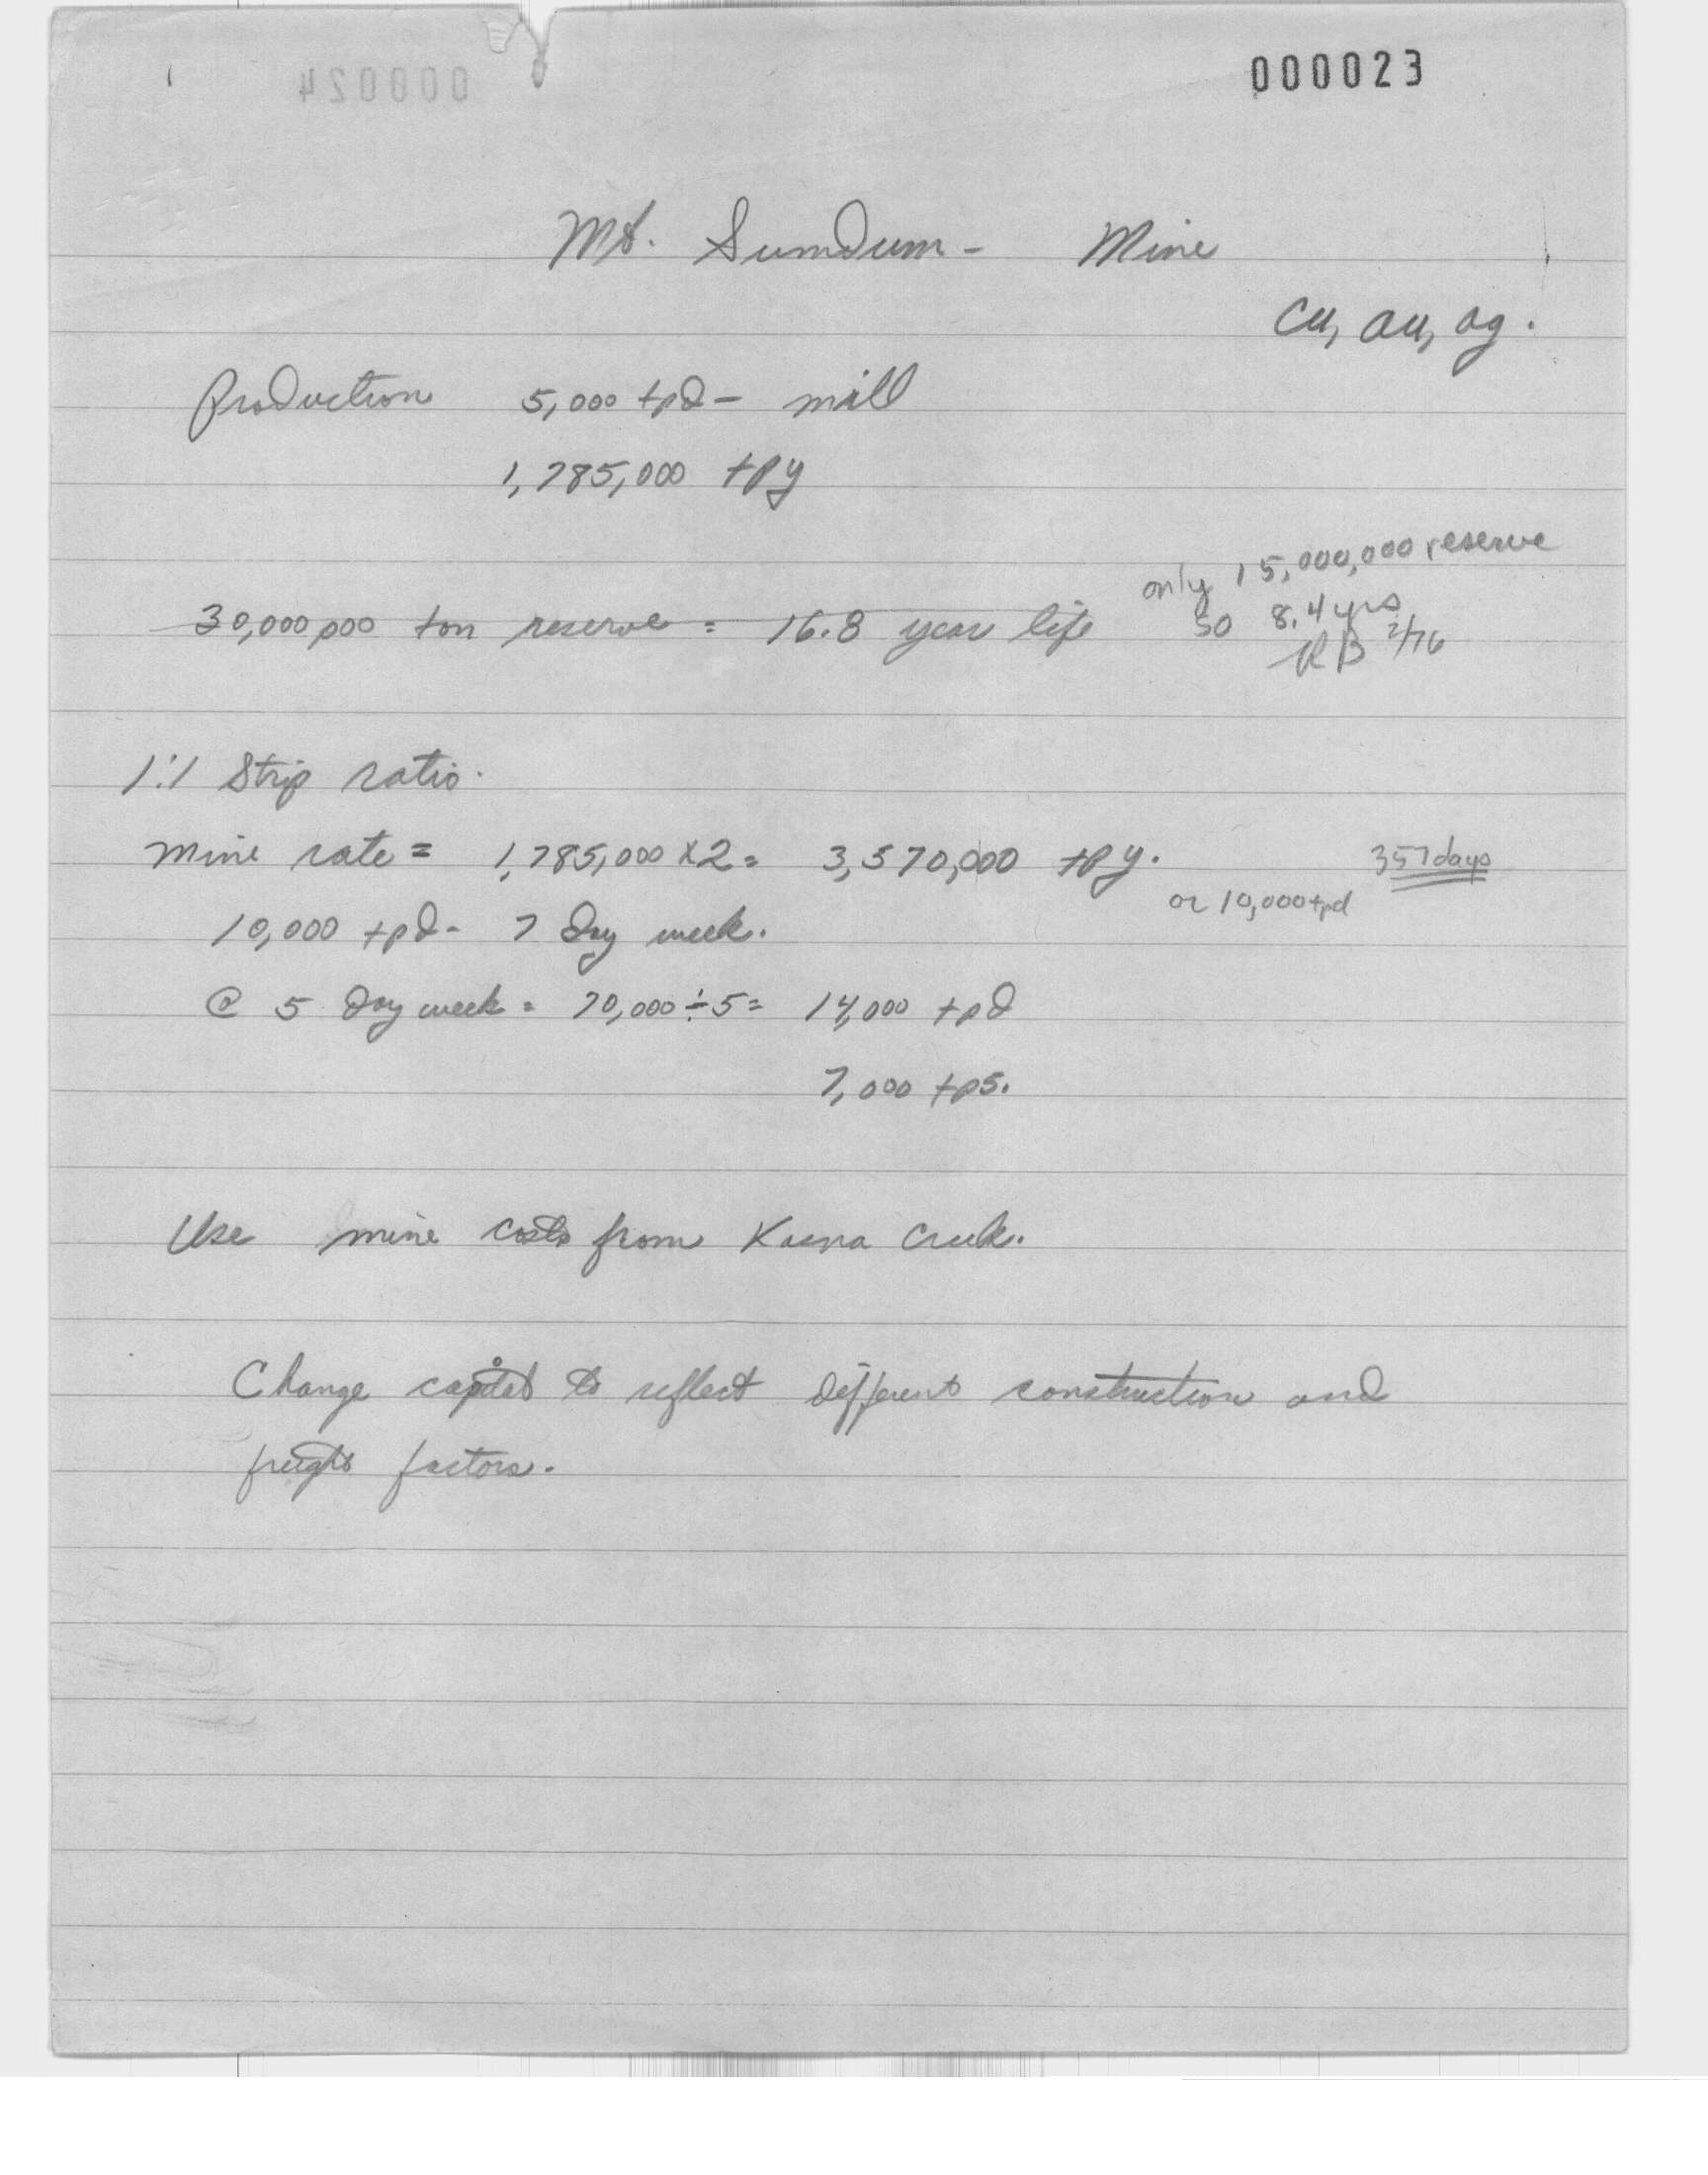 000023
000024
Mt. Sumdum - Mine
Cu, au, ag.
Production 5,000 tpd - mill
1,785,000 tpy
30,000,000 ton reserve = 16.8 year life
only 15,000,000 reserve
so 8.4 yrs
RB 2/76
1:1 Strip ratio.
Mine rate = 1,785,000 x 2 = 3,570,000 tpy.
357 days
or 10,000 tpd
10,000 tpd - 7 Day week.
@ 5 Day week = 70,000 ÷ 5 = 14,000 tpd
7,000 tps.
Use mine costs from Kasna Creek.
Change capital to reflect different construction and
freight factors.